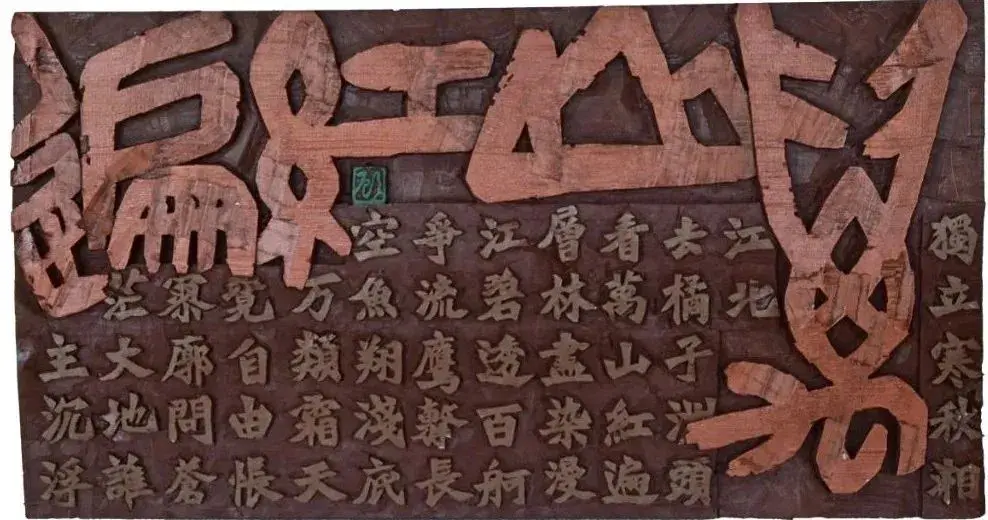 萬山紅遍
獨立寒秋湘
江北
去橘子洲頭
看萬山紅遍
層林盡染漫
江碧透百舸
爭流鷹擊長
空魚翔淺底
万類霜天
競自由悵
寥廓問蒼
茫大地誰
主沉浮